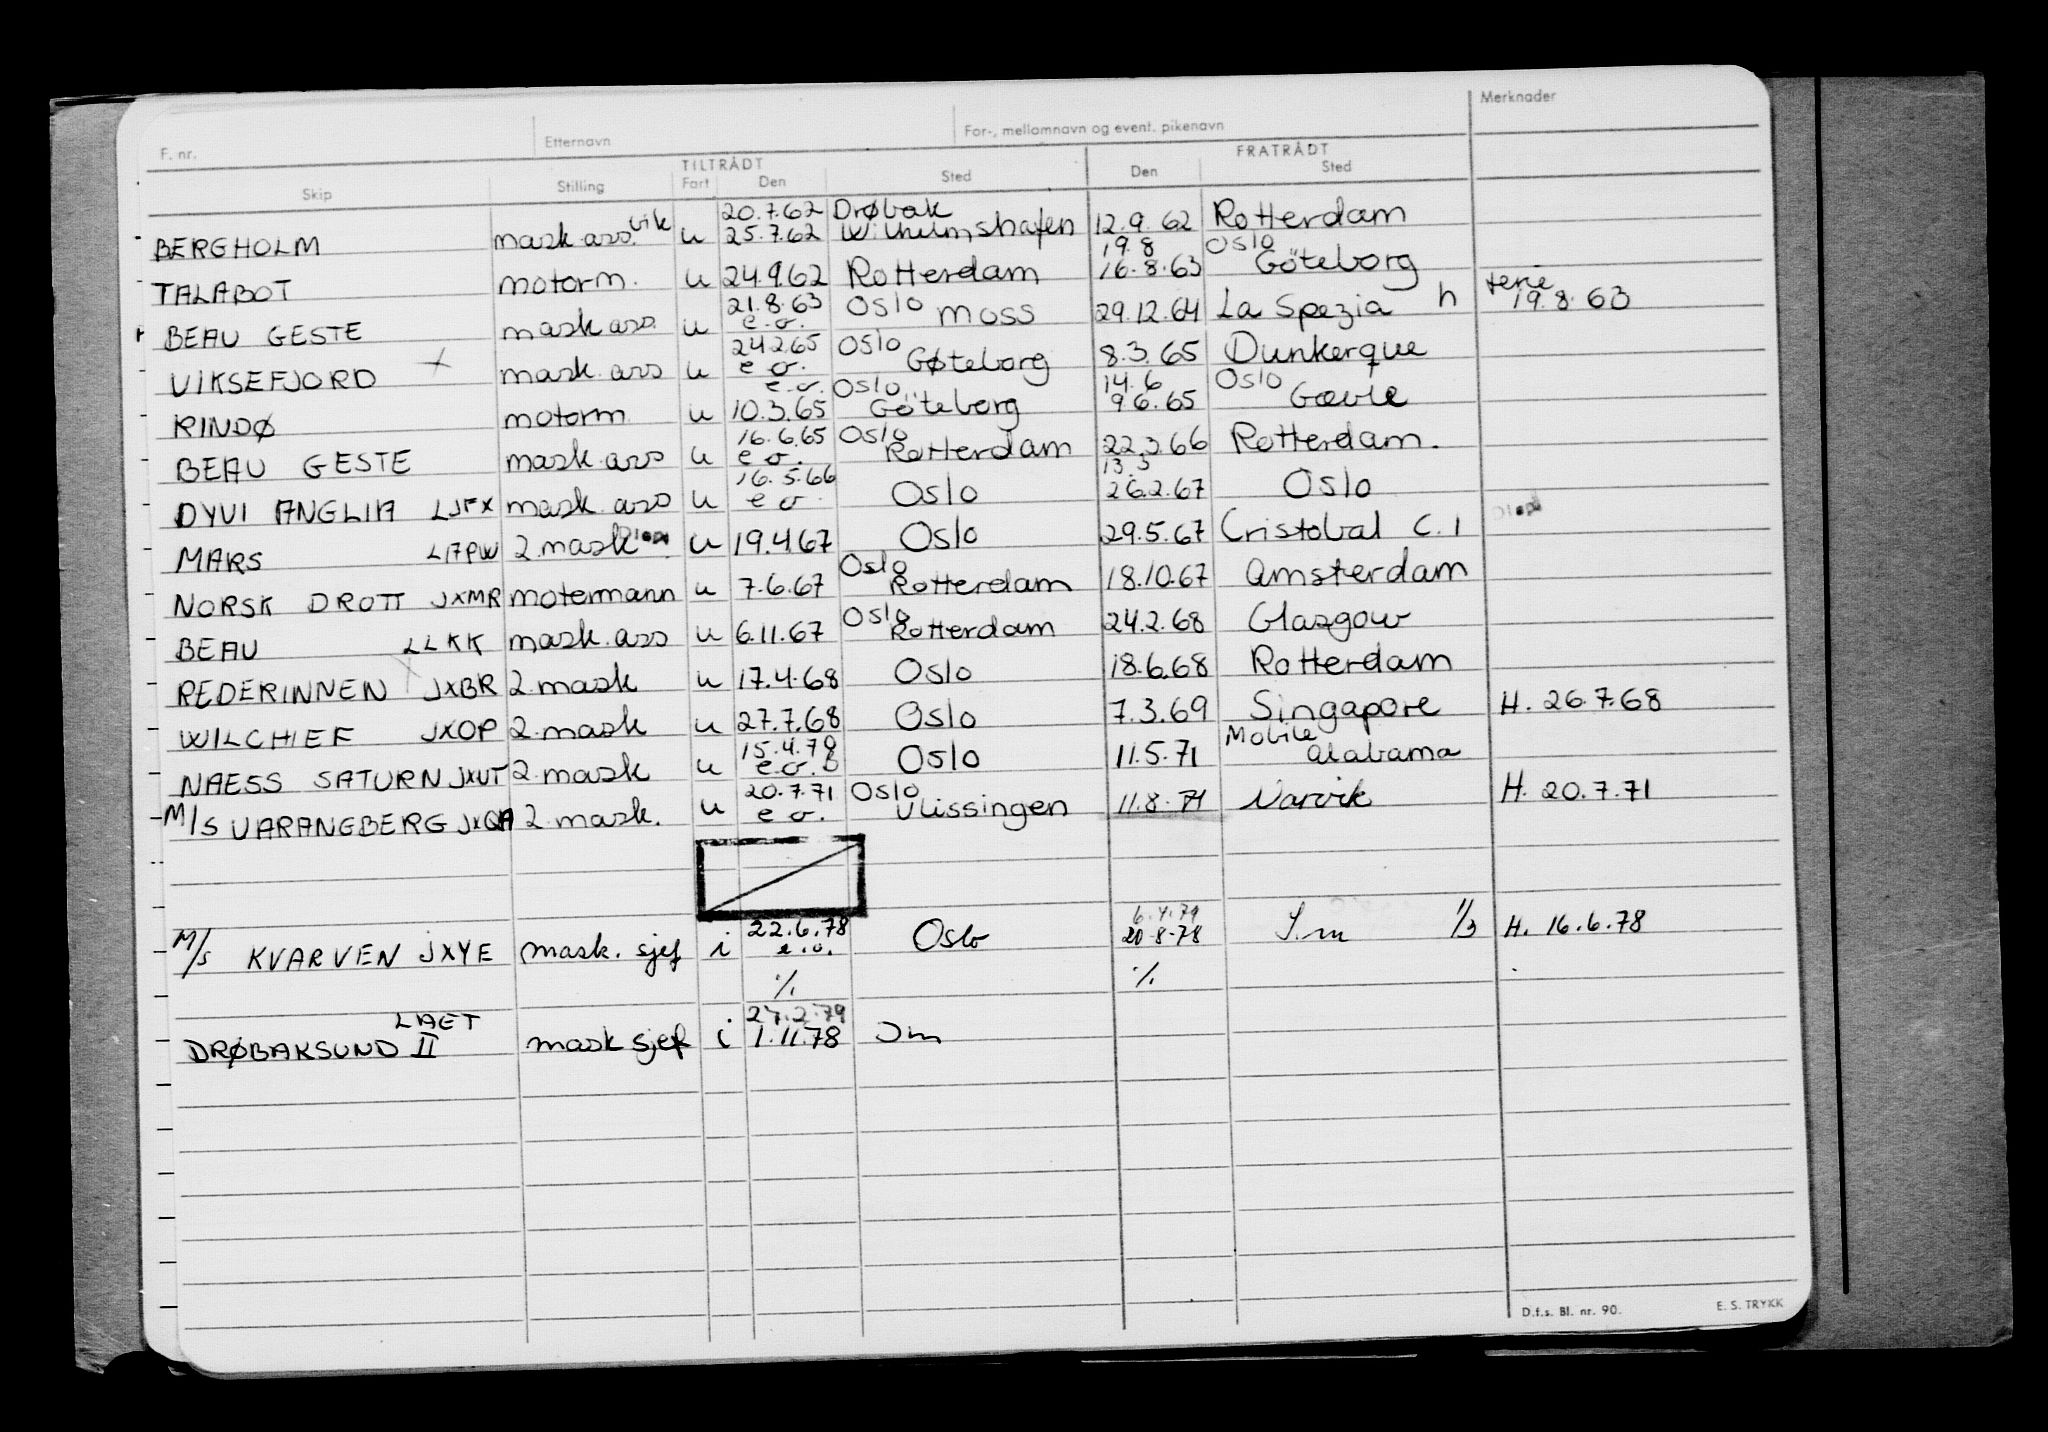 F. nr. Etternavn For-, mellomnavn og event. pikenavn Merknader
TILTRÅDT FRATRÅDT
Skip Stilling Fart Den Sted Den Sted
20.7.62 Drøbak
BERGHOLM mask ass. vik u 25.7.62 Wilhelmshafen 12.9.62 Rotterdam
19.8 Oslo
TALABOT motorm. u 24.9.62 Rotterdam 16.8.63 Göteborg
21.8.63 Oslo ferie
BEAU GESTE mask ass. u e.o. Moss 29.12.64 La Spezia h 19.8.63
24.2.65 Oslo
VIKSEFJORD mask ass u e o. Gøteborg 8.3.65 Dunkerque
e.o. Oslo 14.6 Oslo
RINDØ motorm u 10.3.65 Göteborg 9.6.65 Gævle
16.6.65 Oslo
BEAU GESTE mask ass u e o. Rotterdam 22.3.66 Rotterdam.
16.5.66 13.3
DYVI ANGLIA LJFX mask ass u e o Oslo 26.2.67 Oslo
MARS LAPW 2 mask u 19.4.67 Oslo 29.5.67 Cristobal C.1
Oslo
NORSK DROTT JXMR motermann u 7.6.67 Rotterdam 18.10.67 Amsterdam
Oslo
BEAU LLKK mask ass u 6.11.67 Rotterdam 24.2.68 Glasgow
REDERINNEN JXBR 2 mask u 17.4.68 Oslo 18.6.68 Rotterdam
WILCHIEF JXOP 2 mask u 27.7.68 Oslo 7.3.69 Singapore H. 26.7.68
15.4.70 Mobile
NAESS SATURN JXUT 2 mask u e.o. Oslo 11.5.71 Alabama
20.7.71 Oslo
M/S VARANGBERG JXQA 2 mask. u e o. Vlissingen 11.8.71 Narvik H. 20.7.71
22.6.78 6.4.79
M/s KVARVEN JXYE mask. sjef i e.o. Oslo 20.8.78 S.m 1/3 H. 16.6.78
% %
LAET 27.2.79
DRØBAKSUND II mask sjef i 1.11.78 Sm
D.f.s. Bl. nr. 90. E. S. TRYKK